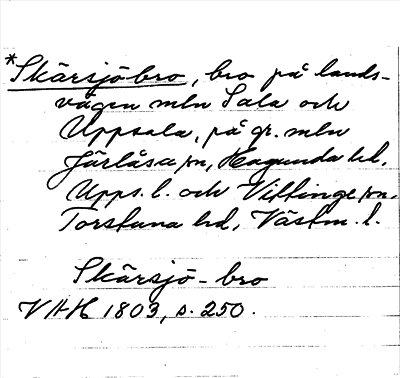 *Skärsjöbro, bro på lands-
vägen mln Sala och
Uppsala, på gr. mln
Järlåsa sn, Hagunda hd,
Upps. l. och Vittinge sn,
Torstuna hd, Västm. l.
Skärsjö-bro
VHH 1803, s. 250.